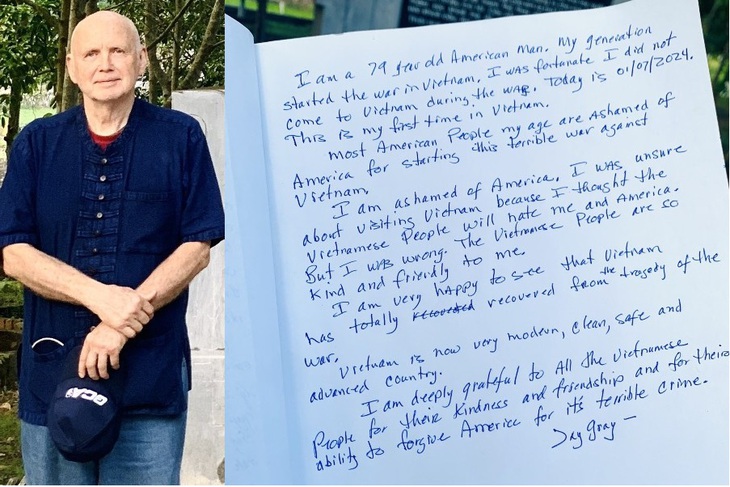 I am a 79 year old American man. My generation
started the war in Vietnam. I was fortunate I did not
come to Vietnam during the war. Today is 01/07/2024.
This is my first time in Vietnam.
Most American People my age are Ashamed of
America for starting this terrible war against
Vietnam.
I am ashamed of America. I was unsure
about visiting Vietnam because I thought the
Vietnamese People will hate me and America.
But I was wrong. The Vietnamese People are so
kind and friendly to me.
I am very happy to see that Vietnam
has totally recovered from the tragedy of the
war.
Vietnam is now very modern, clean, safe and
advanced country.
I am deeply grateful to All the Vietnamese
People for their kindness and friendship and for theirs
ability to forgive America for it's terrible crime.
Jay Gray –